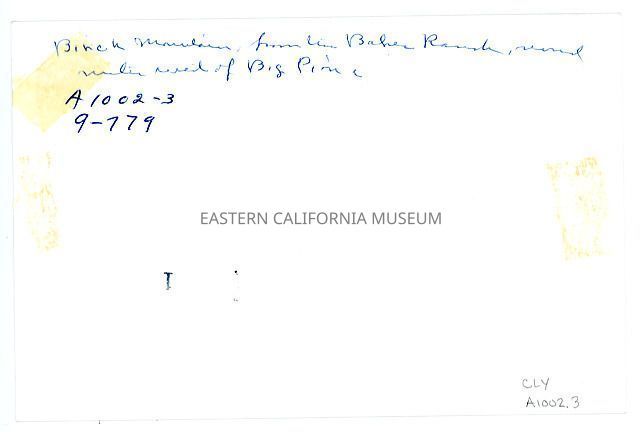 Birch Mountain, from the Baker Ranch, several
miles west of Big Pine
A1002-3
9-779
EASTERN CALIFORNIA MUSEUM
I
CLY
A1002.3